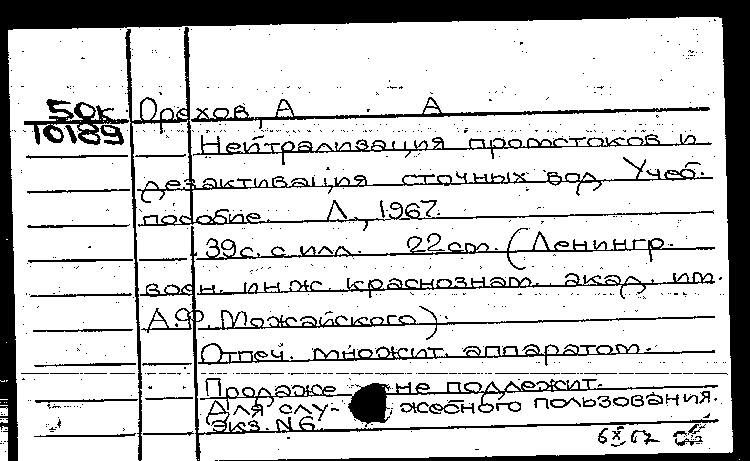 50к Орехов, А А
10189
Нейтрализация промстоков и
дезактивация сточных вод, Учеб.
пособие. Л., 1967.
39с. с илл. 22 cm. (Ленингр.
воен. инж. краснознам. акад. им.
А.Ф. Можайского).
Отпеч. множит. аппаратом.
Продаже не подлежит.
Для слу- жебного пользования.
Экз. N6.
6 X 67